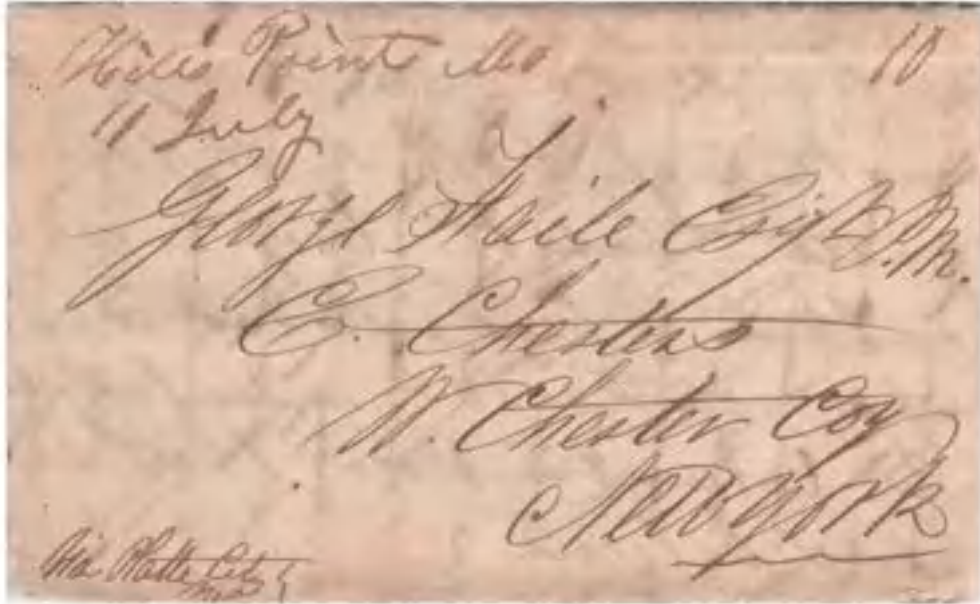 Hill's Point Mo 10
11 July
George Faile Esqr P.M.
E. Chester
W. Chester Coy
New York
Via Platte City
Mo